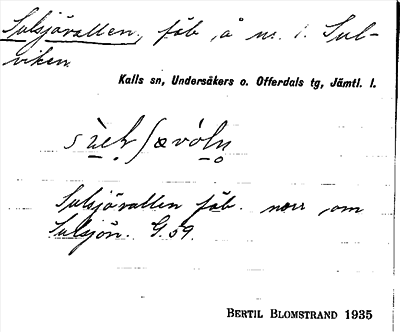 Sulsjövallen, fäb, å nr. 1. Sul-
viken
Kalls sn, Undersåkers o. Offerdals tg, Jämtl. l.
Sulsjövallen fäb. norr om
Sulsjön. G. 59.
BERTIL BLOMSTRAND 1935